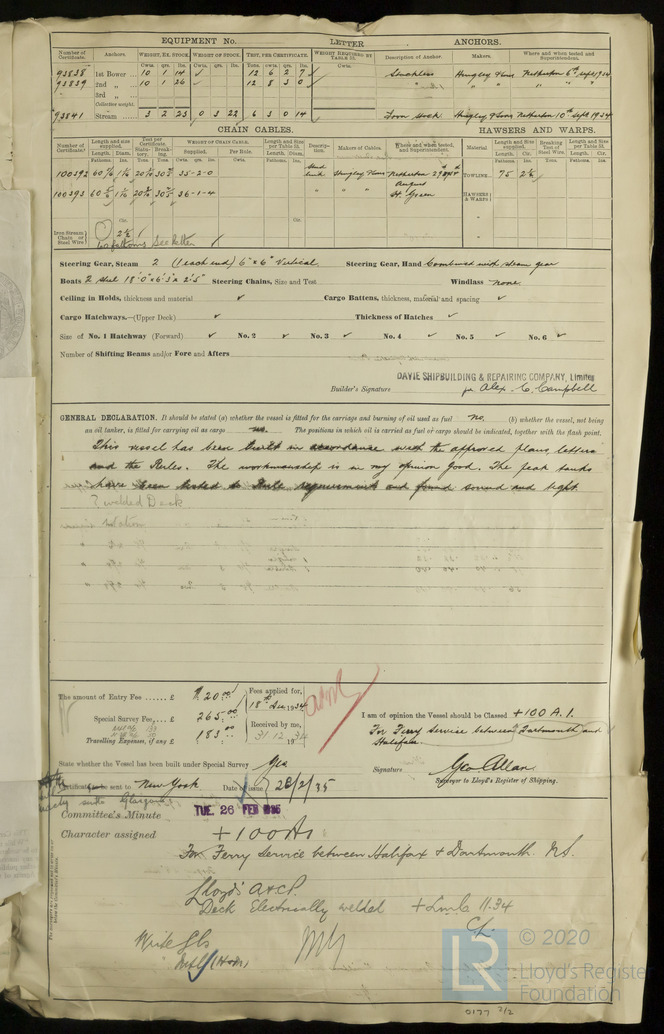 EQUIPMENT No. LETTER ANCHORS.
Number of Certificate. Anchors. WEIGHT, EX. STOCK. WEIGHT OF STOCK. TEST, PER CERTIFICATE. WEIGHT REQUIRED BY TABLE 31. Description of Anchor. Makers. Where and when tested and Superintendent.
Cwts. qrs. lbs. Cwts. qrs. lbs. Tons. cwts. qrs. lbs. Cwts.
93838 1st Bower 10 1 14 ✓ 12 6 2 7 Stockless Hingley & Sons Netherton 6th Sept 1934
93839 2nd „ 10 1 26 12 8 3 0 „ „ „ „ „
3rd „
Collective weight.
93841 Stream 3 2 23 0 3 22 6 3 0 14 Iron Stock Hingley & Sons Netherton 10th Sept 1934
CHAIN CABLES. HAWSERS AND WARPS.
Number of Certificate. Length and size supplied. Test per Certificate. WEIGHT OF CHAIN CABLE. Length and Size per Table 31. Description. Makers of Cables. Where and when tested, and Superintendent. Material Length and Size supplied. Breaking Test of Steel Wire. Length and Size per Table 31.
Supplied. Per Rule.
100392 35-2-0 Stud link Hingley & Sons Netherton TOWLINE 75
100393 36-1-4 „ „ „ August H. Green HAWSERS & WARPS
Iron Stream Chain or Steel Wire 60 fathoms See letter ✓
Steering Gear, Steam 2 (1 each end) 6" x 6" Vertical Steering Gear, Hand Combined with steam gear
Boats 2 steel 18'0" x 6'3" x 2'5" Steering Chains, Size and Test Windlass None.
Ceiling in Holds, thickness and material ✓ Cargo Battens, thickness, material and spacing ✓
Cargo Hatchways.—(Upper Deck) ✓ Thickness of Hatches ✓
Size of No. 1 Hatchway (Forward) ✓ No. 2 ✓ No. 3 ✓ No. 4 ✓ No. 5 ✓ No. 6 ✓
Number of Shifting Beams and/or Fore and Afters
DAVIE SHIPBUILDING & REPAIRING COMPANY, Limited
Builder's Signature per Alex. C. Campbell
GENERAL DECLARATION. It should be stated (a) whether the vessel is fitted for the carriage and burning of oil used as fuel no. (b) whether the vessel, not being
an oil tanker, is fitted for carrying oil as cargo no. The positions in which oil is carried as fuel or cargo should be indicated, together with the flash point.
This vessel has been built in accordance with the approved plans letters
and the Rules. The workmanship is in my opinion good. The peak tanks
have been tested to Rule requirements and found sound and tight.
? welded Deck
notation
The amount of Entry Fee £ 20.00 Fees applied for, 18th Dec 1934
Special Survey Fee, £ 265.00 Received by me,
Travelling Expenses, if any £ 183.00 31.12.1934
I am of opinion the Vessel should be Classed +100 A.1.
For Ferry service between Dartmouth and
Halifax.
State whether the Vessel has been built under Special Survey Yes
Signature Geo Allan
Surveyor to Lloyd's Register of Shipping.
Certificate to be sent to New York Date of issue 28/2/35
Glasgow
TUE. 26 FEB 1935
Committee's Minute
Character assigned +100A1
For Ferry Service between Halifax & Dartmouth N.S.
Lloyd's A&CP.
Deck Electrically welded +LMC 11.34
CL
Write
LR © 2020
Lloyd's Register
Foundation
0177 2/2